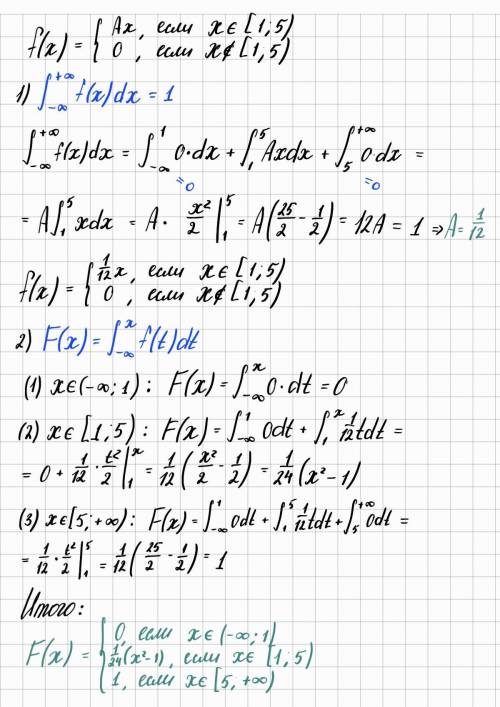 f(x) = { Ax, если x ∈ [1; 5)
0, если x ∉ [1, 5)
1) ∫_{-∞}^{+∞} f(x)dx = 1
∫_{-∞}^{+∞} f(x)dx = ∫_{-∞}^{1} 0·dx + ∫_{1}^{5} Axdx + ∫_{5}^{+∞} 0dx =
=0 =0
= A∫_{1}^{5} xdx = A · x²/2 |_{1}^{5} = A(25/2 - 1/2) = 12A = 1 ⇒ A = 1/12
f(x) = { 1/12 x, если x ∈ [1; 5)
0, если x ∉ [1, 5)
2) F(x) = ∫_{-∞}^{x} f(t)dt
(1) x ∈ (-∞; 1) : F(x) = ∫_{-∞}^{x} 0·dt = 0
(2) x ∈ [1; 5) : F(x) = ∫_{-∞}^{1} 0dt + ∫_{1}^{x} 1/12 tdt =
= 0 + 1/12 · t²/2 |_{1}^{x} = 1/12 (x²/2 - 1/2) = 1/24 (x² - 1)
(3) x ∈ [5; +∞) : F(x) = ∫_{-∞}^{1} 0dt + ∫_{1}^{5} 1/12 tdt + ∫_{5}^{+∞} 0dt =
= 1/12 · t²/2 |_{1}^{5} = 1/12 (25/2 - 1/2) = 1
Итого:
F(x) = { 0, если x ∈ (-∞; 1)
1/24 (x²-1), если x ∈ [1; 5)
1, если x ∈ [5, +∞)